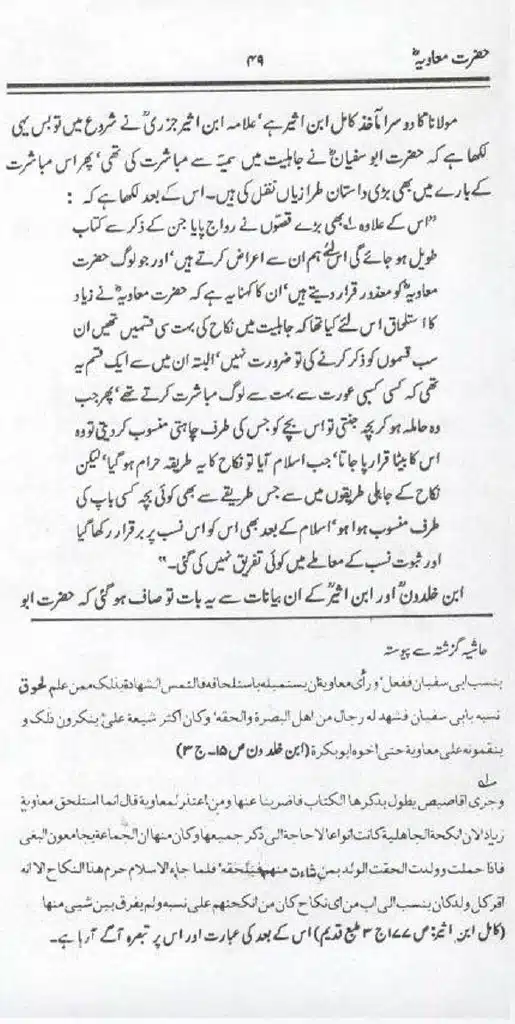 حضرت معاویہؓ
۴۹
مولانا کا دوسرا مأخذ کامل ابن اثیر ہے، علامہ ابن اثیر جزریؒ نے شروع میں تو بس یہی
لکھا ہے کہ حضرت ابو سفیانؓ نے جاہلیت میں سمیّہ سے مباشرت کی تھی، پھر اس مباشرت
کے بارے میں بھی بڑی داستان طرازیاں نقل کی ہیں۔ اس کے بعد لکھا ہے کہ :
"اس کے علاوہ لے بھی بڑے قصّوں نے رواج پایا جن کے ذکر سے کتاب
طویل ہو جائے گی اس لئے ہم ان سے اعراض کرتے ہیں، اور جو لوگ حضرت
معاویہؓ کو معذور قرار دیتے ہیں، ان کا کہنا یہ ہے کہ حضرت معاویہؓ نے زیاد
کا استلحاق اس لئے کیا تھا کہ جاہلیت میں نکاح کی بہت سی قسمیں تھیں ان
سب قسموں کو ذکر کرنے کی تو ضرورت نہیں، البتہ ان میں سے ایک قسم یہ
تھی کہ کسی کسبی عورت سے بہت سے لوگ مباشرت کرتے تھے، پھر جب
وہ حاملہ ہو کر بچہ جنتی تو اس بچے کو جس کی طرف چاہتی منسوب کر دیتی تو وہ
اس کا بیٹا قرار پا جاتا، جب اسلام آیا تو نکاح کا یہ طریقہ حرام ہو گیا، لیکن
نکاح کے جاہلی طریقوں میں سے جس طریقے سے بھی کوئی بچہ کسی باپ کی
طرف منسوب ہوا ہو، اسلام کے بعد بھی اس کو اس نسب پر برقرار رکھا گیا
اور ثبوت نسب کے معاملے میں کوئی تفریق نہیں کی گئی۔"
ابن خلدونؒ اور ابن اثیرؒ کے ان بیانات سے یہ بات تو صاف ہو گئی کہ حضرت ابو
حاشیہ گزشتہ سے پیوستہ
بنسب ابی سفیان ففعل، ورأی معاویة ان یستمیله باستلحاقه فالتمس الشهادة بذلک ممن علم لحوق
نسبه بابی سفیان فشهد له رجال من اهل البصرة والحقه، وکان اکثر شیعة علیؓ ینکرون ذلک و
ینقمونه علی معاویة حتی اخوه ابوبکرة (ابن خلدون ص ۱۵۔ ج ۳)
لے
وجری اقاصیص یطول بذکرها الکتاب فاضربنا عنها ومن اعتذر لمعاویة قال انما استلحق معاویة
زیادا لان انکحة الجاهلیة کانت انواعا لا حاجة الی ذکر جمیعها وکان منها ان الجماعة یجامعون البغی
فاذا حملت وولدت الحقت الولد بمن شاءت منهم فیلحقه، فلما جاء الاسلام حرم هذا النکاح الا انه
اقر کل ولد کان ینسب الی اب من ای نکاح کان من انکحتهم علی نسبه ولم یفرق بین شیئ منها
(کامل ابن اثیر: ص ۱۷۷ ج ۳ طبع قدیم) اس کے بعد کی عبارت اور اس پر تبصرہ آگے آ رہا ہے۔